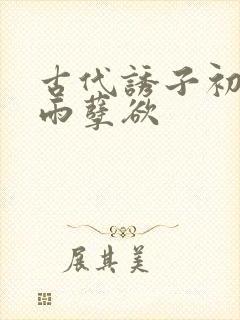 古代誘子初
雨孽欲
展其美